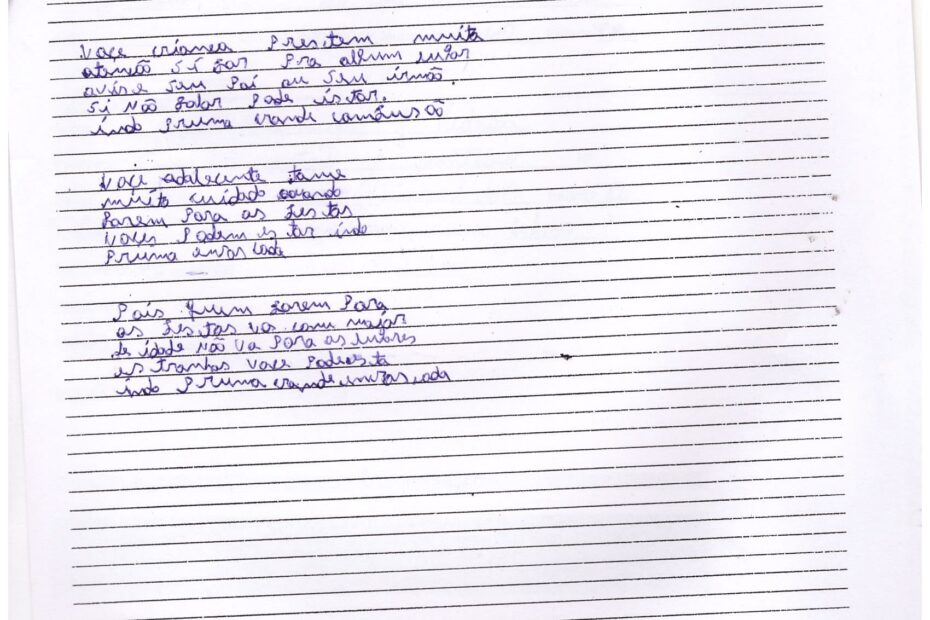 Voce criança Prestem muita
atencão Si for Pra algum lugar
avise Seu Pai ou Seu irmão.
Si Não falar Pode istar.
indo Pruma grande confusão
Voce adolecente tome
muito cuidado quando
forem Para as festas
Voces Podem is tar indo
Pruma enras cada
Pais quem forem Para
as festas vas com major
de idade Não va Para as lugares
is tranhos Voce Pode esta
indo Pruma grande enras cada